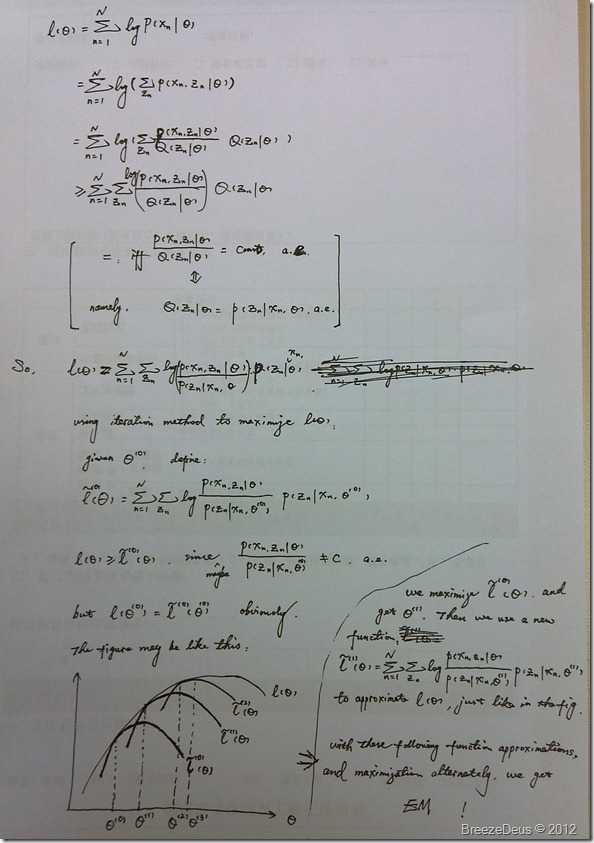 l(θ) = Σ_{n=1}^{N} log P(x_n | θ)
= Σ_{n=1}^{N} log ( Σ_{z_n} p(x_n, z_n | θ) )
= Σ_{n=1}^{N} log ( Σ_{z_n} p(x_n, z_n | θ) / Q(z_n | θ) Q(z_n | θ) )
≥ Σ_{n=1}^{N} Σ_{z_n} log ( p(x_n, z_n | θ) / Q(z_n | θ) ) Q(z_n | θ)
[ = : iff p(x_n, z_n | θ) / Q(z_n | θ) = const, a.e.
⇕
namely. Q(z_n | θ) = p(z_n | x_n, θ), a.e. ]
So, l(θ) = Σ_{n=1}^{N} Σ_{z_n} log ( p(x_n, z_n | θ) / p(z_n | x_n, θ) ) · p(z_n | x_n, θ)
using iteration method to maximize l(θ),
given θ^(0), define:
l̃^(0)(θ) = Σ_{n=1}^{N} Σ_{z_n} log p(x_n, z_n | θ) / p(z_n | x_n, θ^(0)) p(z_n | x_n, θ^(0))
l(θ) ≥ l̃^(0)(θ). since p(x_n, z_n | θ) / p(z_n | x_n, θ^(0)) maybe ≠ C. a.e.
but l(θ^(0)) = l̃^(0)(θ^(0)) obviously.
The figure may be like this:
l(θ)
l̃^(2)(θ)
l̃^(1)(θ)
l̃^(0)(θ)
θ^(0) θ^(1) θ^(2) θ^(3) θ
we maximize l̃^(0)(θ). and
get θ^(1). Then we use a new
function,
l̃^(1)(θ) = Σ_{n=1}^{N} Σ_{z_n} log p(x_n, z_n | θ) / p(z_n | x_n, θ^(1)) p(z_n | x_n, θ^(1))
to approximate l(θ), just like in the fig.
⇒ with these following function approximations,
and maximization alternately, we get
EM !
BreezeDeus © 2012